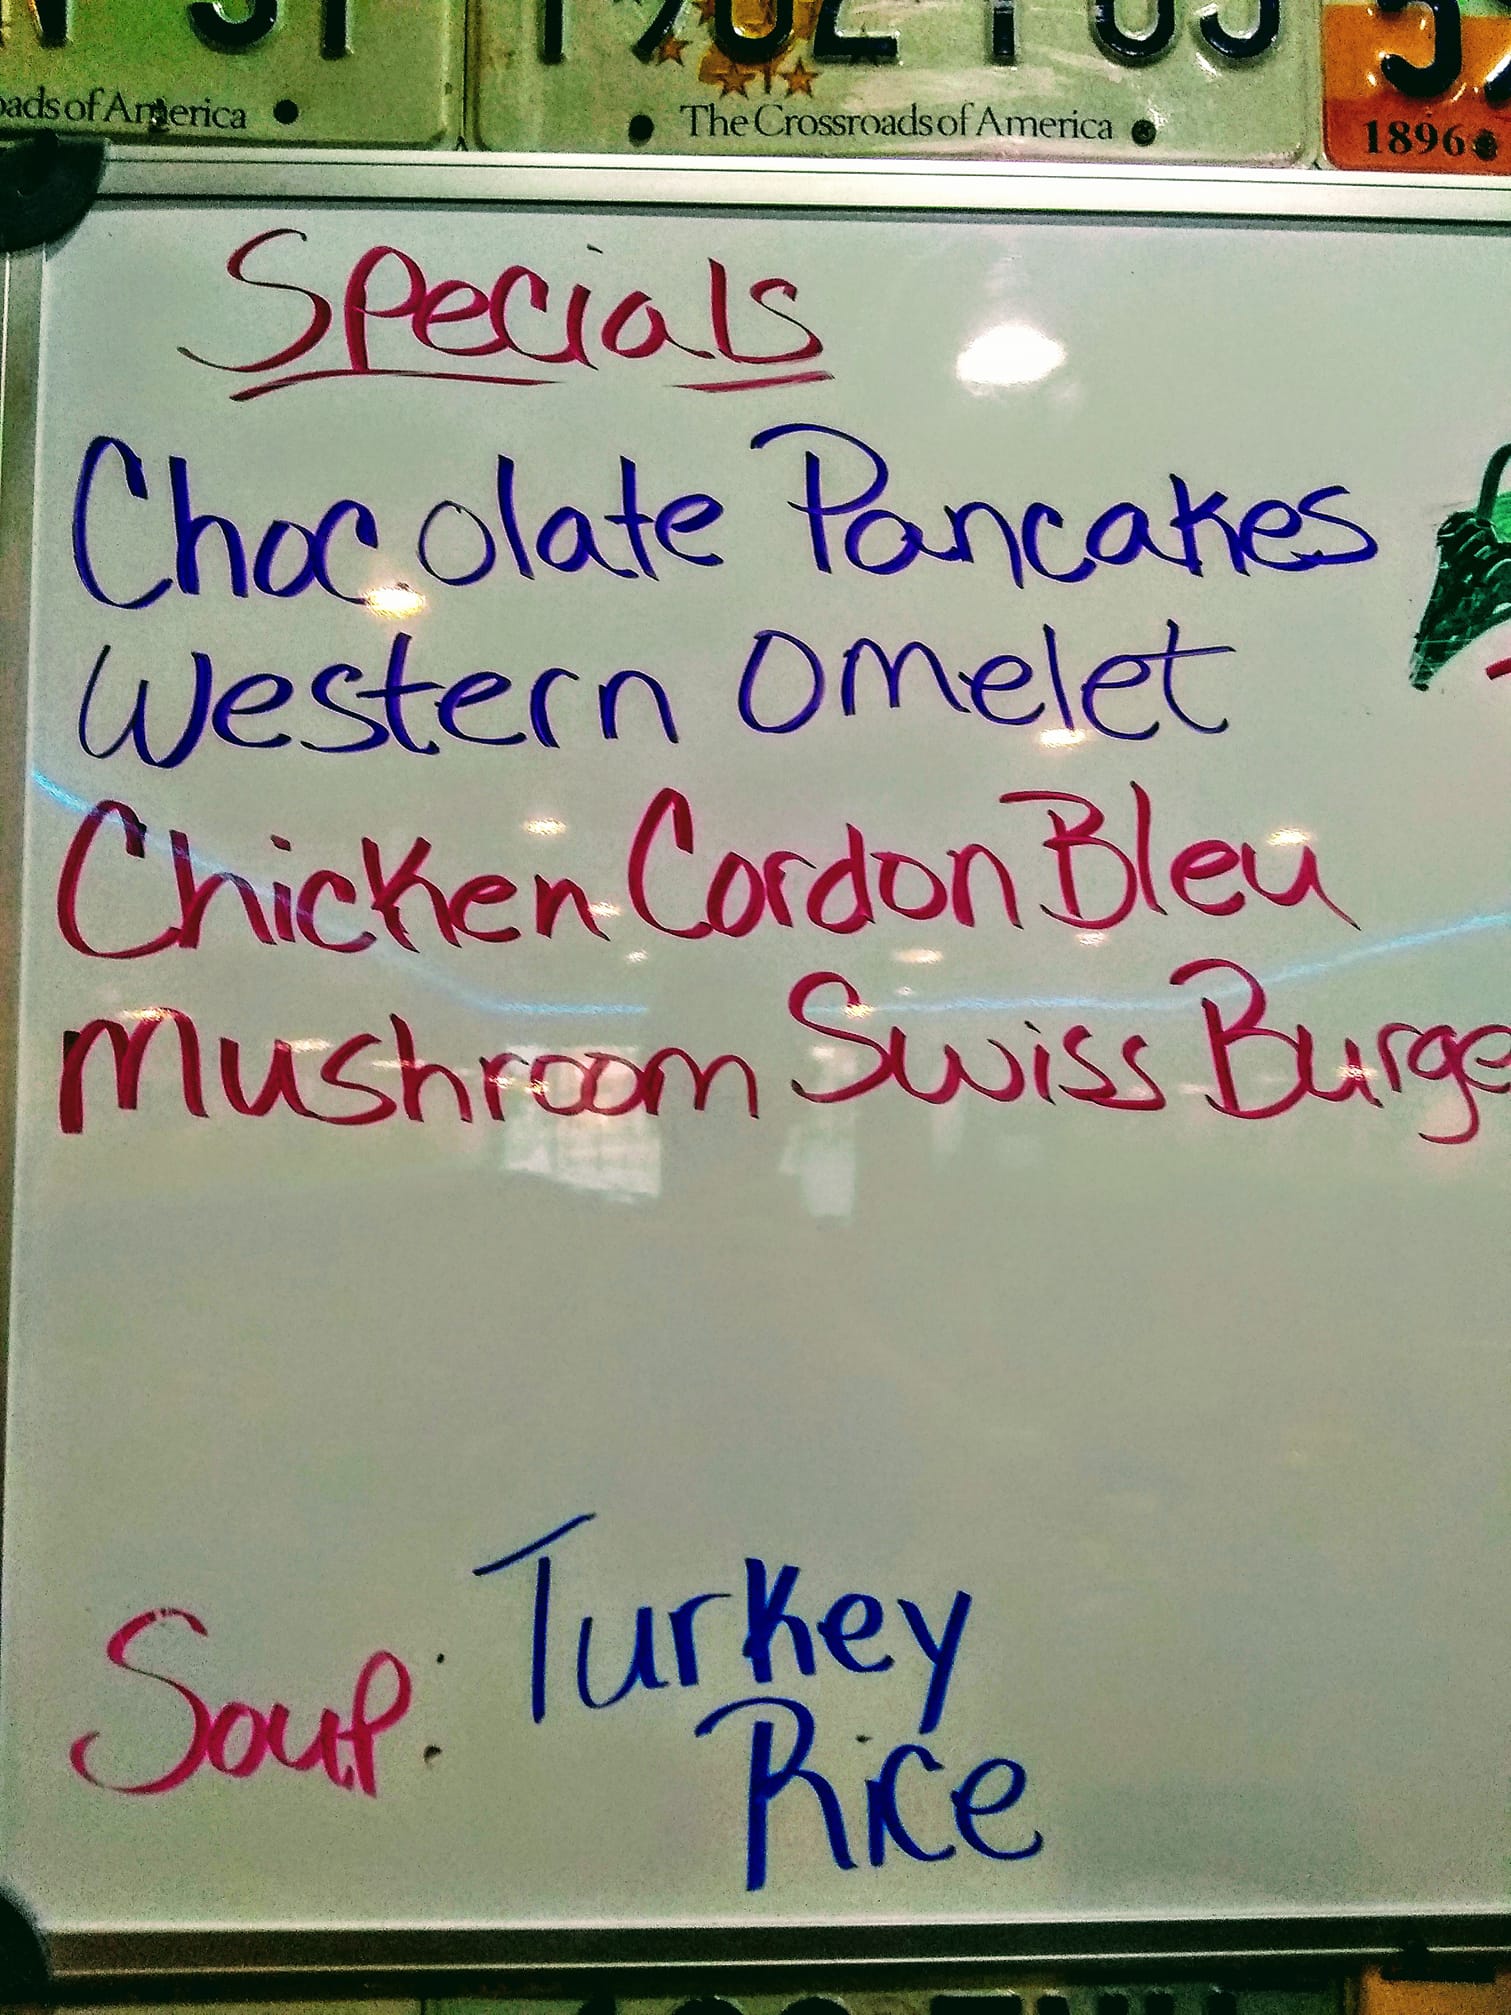 The Crossroads of America
1896
Specials
Chocolate Pancakes
Western Omelet
Chicken Cordon Bleu
Mushroom Swiss Burge
Soup: Turkey
Rice